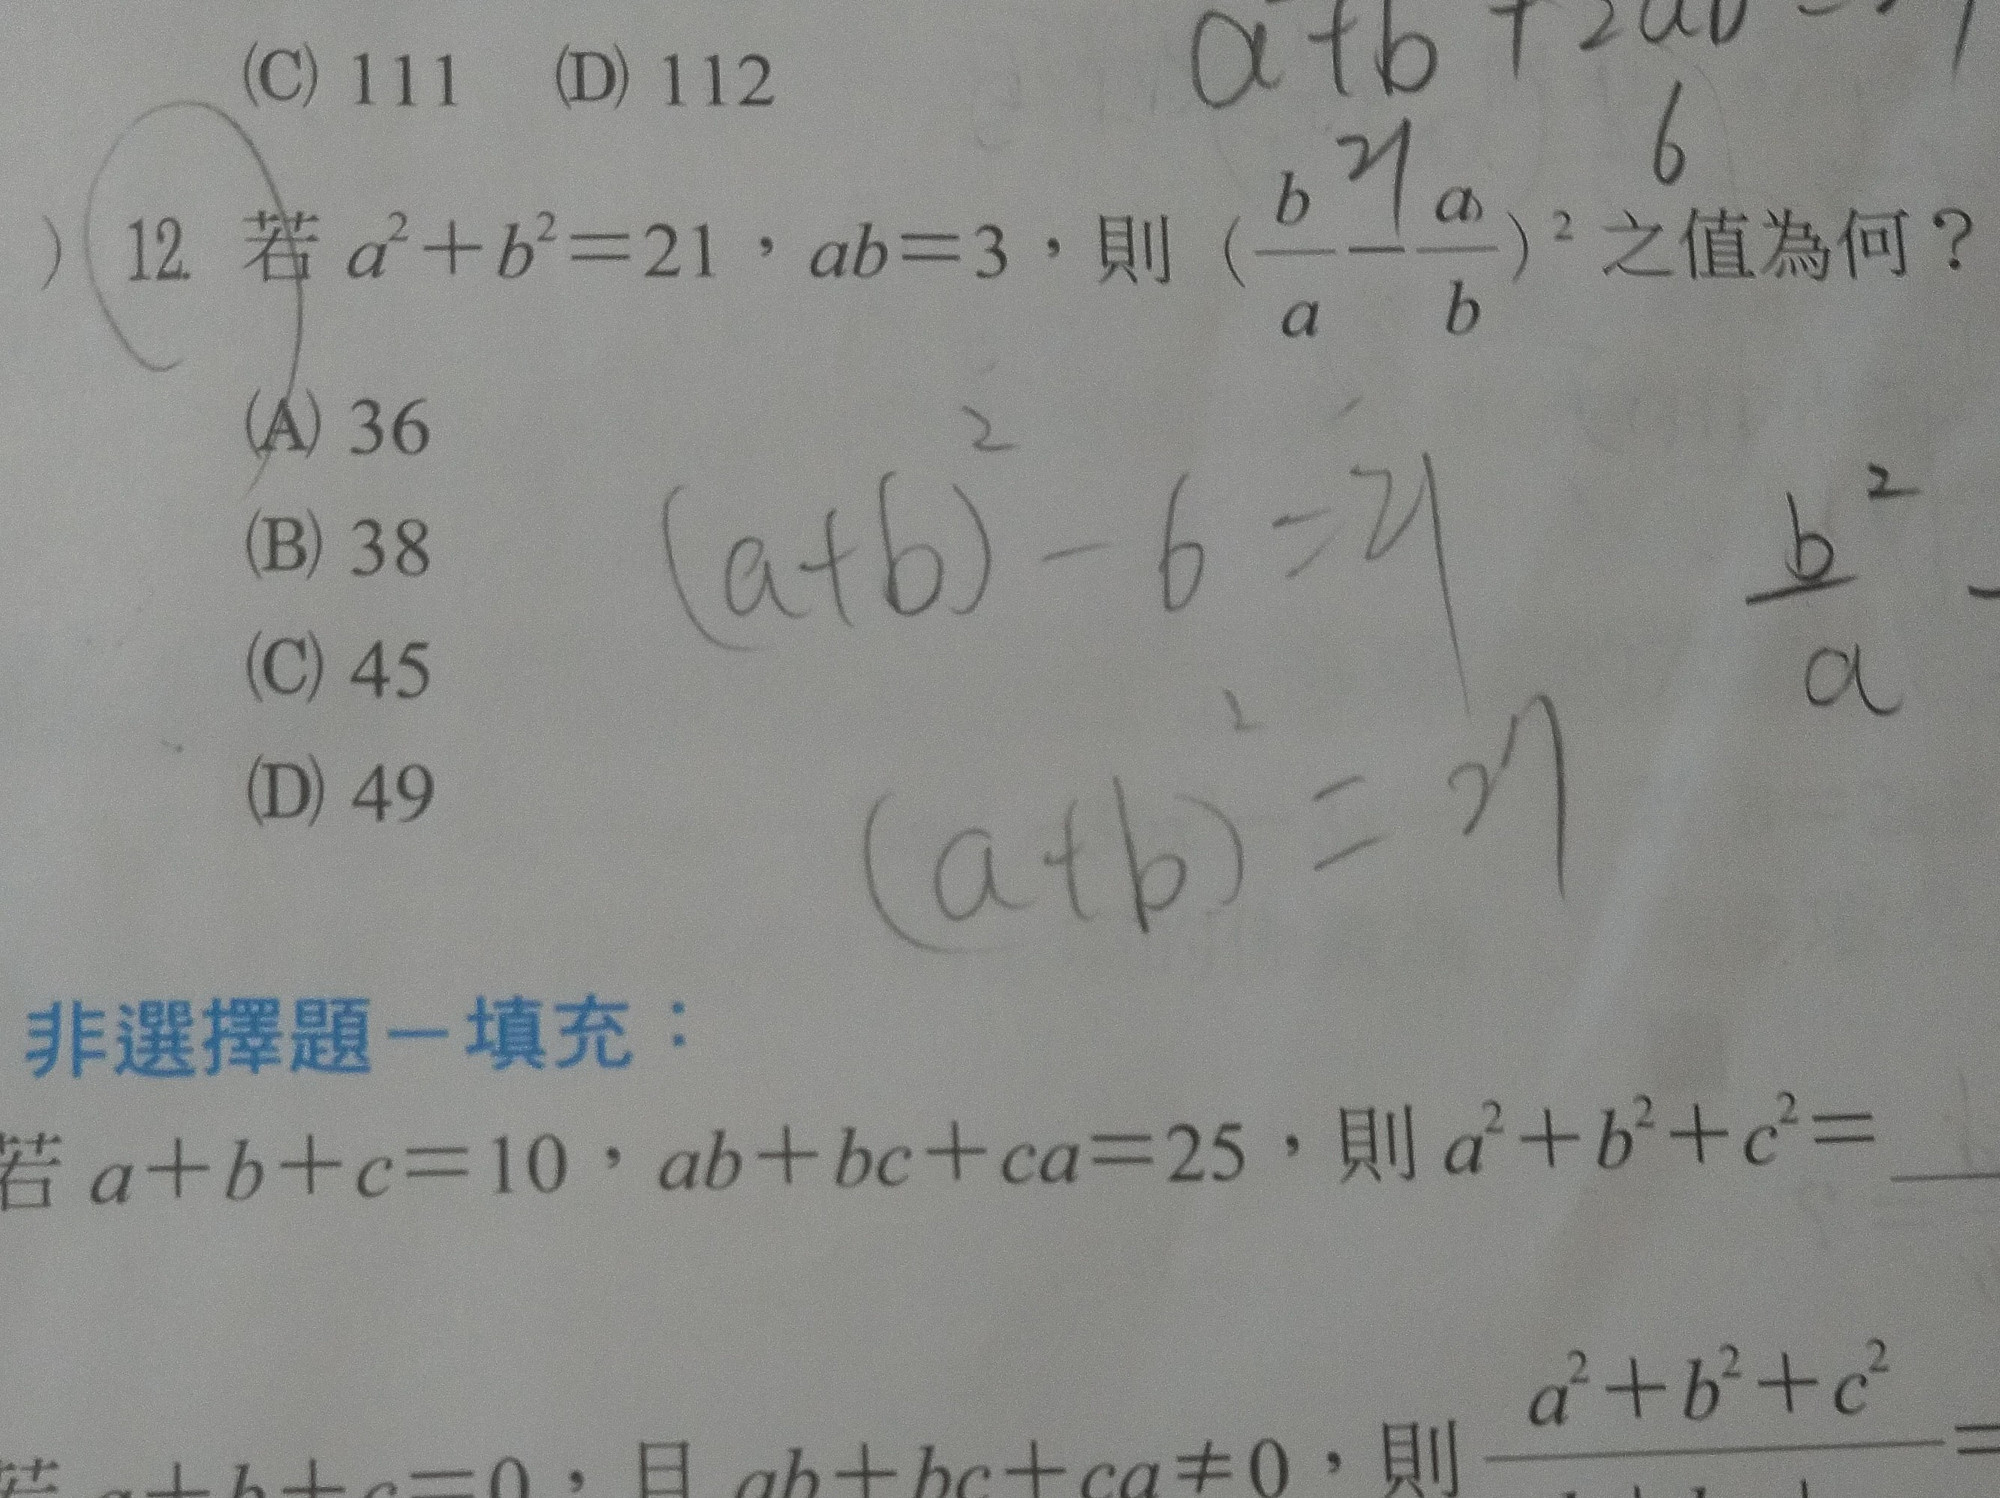 (C) 111 (D) 112
) 12. 若 a²+b²=21，ab=3，則 (b/a－a/b)² 之值為何？
6
(A) 36
(B) 38
(C) 45
(D) 49
(a+b)² - 6 = 21
b²/a -
(a+b)² =
非選擇題－填充：
若 a+b+c=10，ab+bc+ca=25，則 a²+b²+c²=
若 a+b+c=0，且 ab+bc+ca≠0，則 a²+b²+c² =